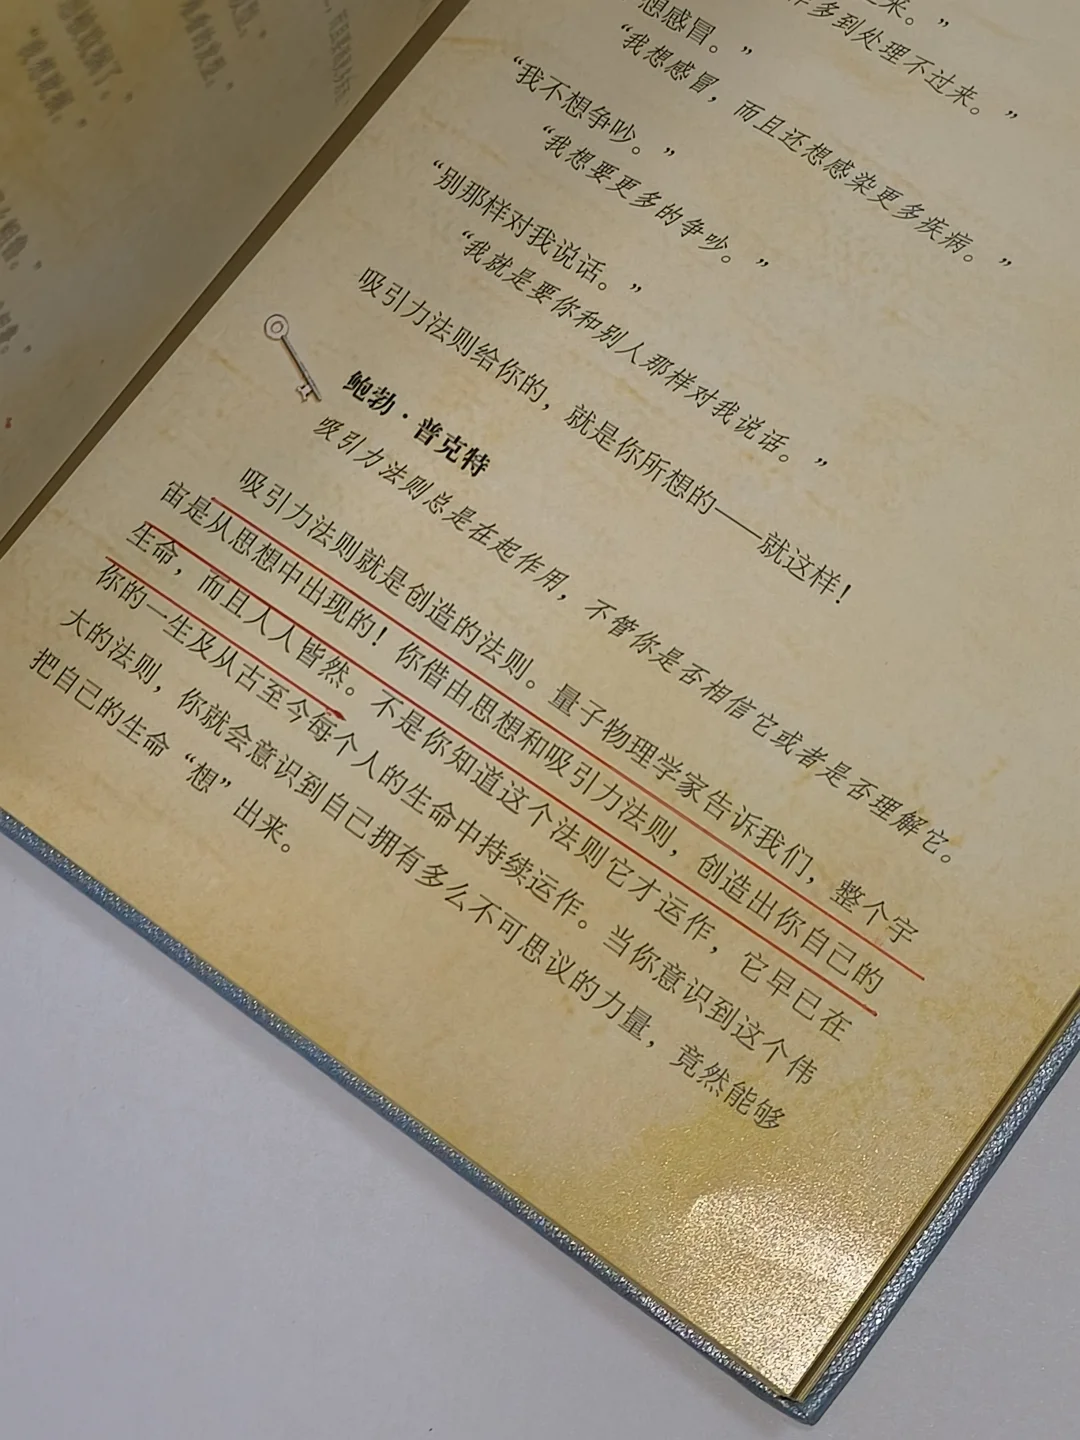 多到处理不过来。”
想感冒。”
“我想感冒，而且还想感染更多疾病。”
“我不想争吵。”
“我想要更多的争吵。”
“别那样对我说话。”
“我就是要你和别人那样对我说话。”
吸引力法则给你的，就是你所想的——就这样！
鲍勃·普克特
吸引力法则总是在起作用，不管你是否相信它或者是否理解它。
吸引力法则就是创造的法则。量子物理学家告诉我们，整个宇
宙是从思想中出现的！你借由思想和吸引力法则，创造出你自己的
生命，而且人人皆然。不是你知道这个法则它才运作，它早已在
你的一生及从古至今每个人的生命中持续运作。当你意识到这个伟
大的法则，你就会意识到自己拥有多么不可思议的力量，竟然能够
把自己的生命“想”出来。